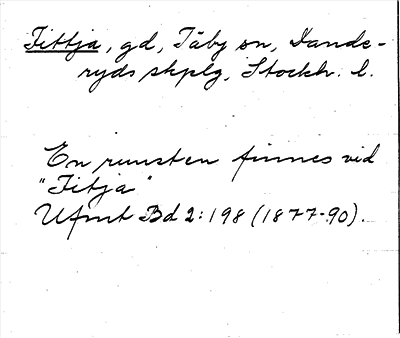 Tittja, gd, Täby sn, Dande-
ryds skplg, Stockh. l.
En runsten finnes vid
"Titja"
Ufmt Bd 2:198 (1877-90).